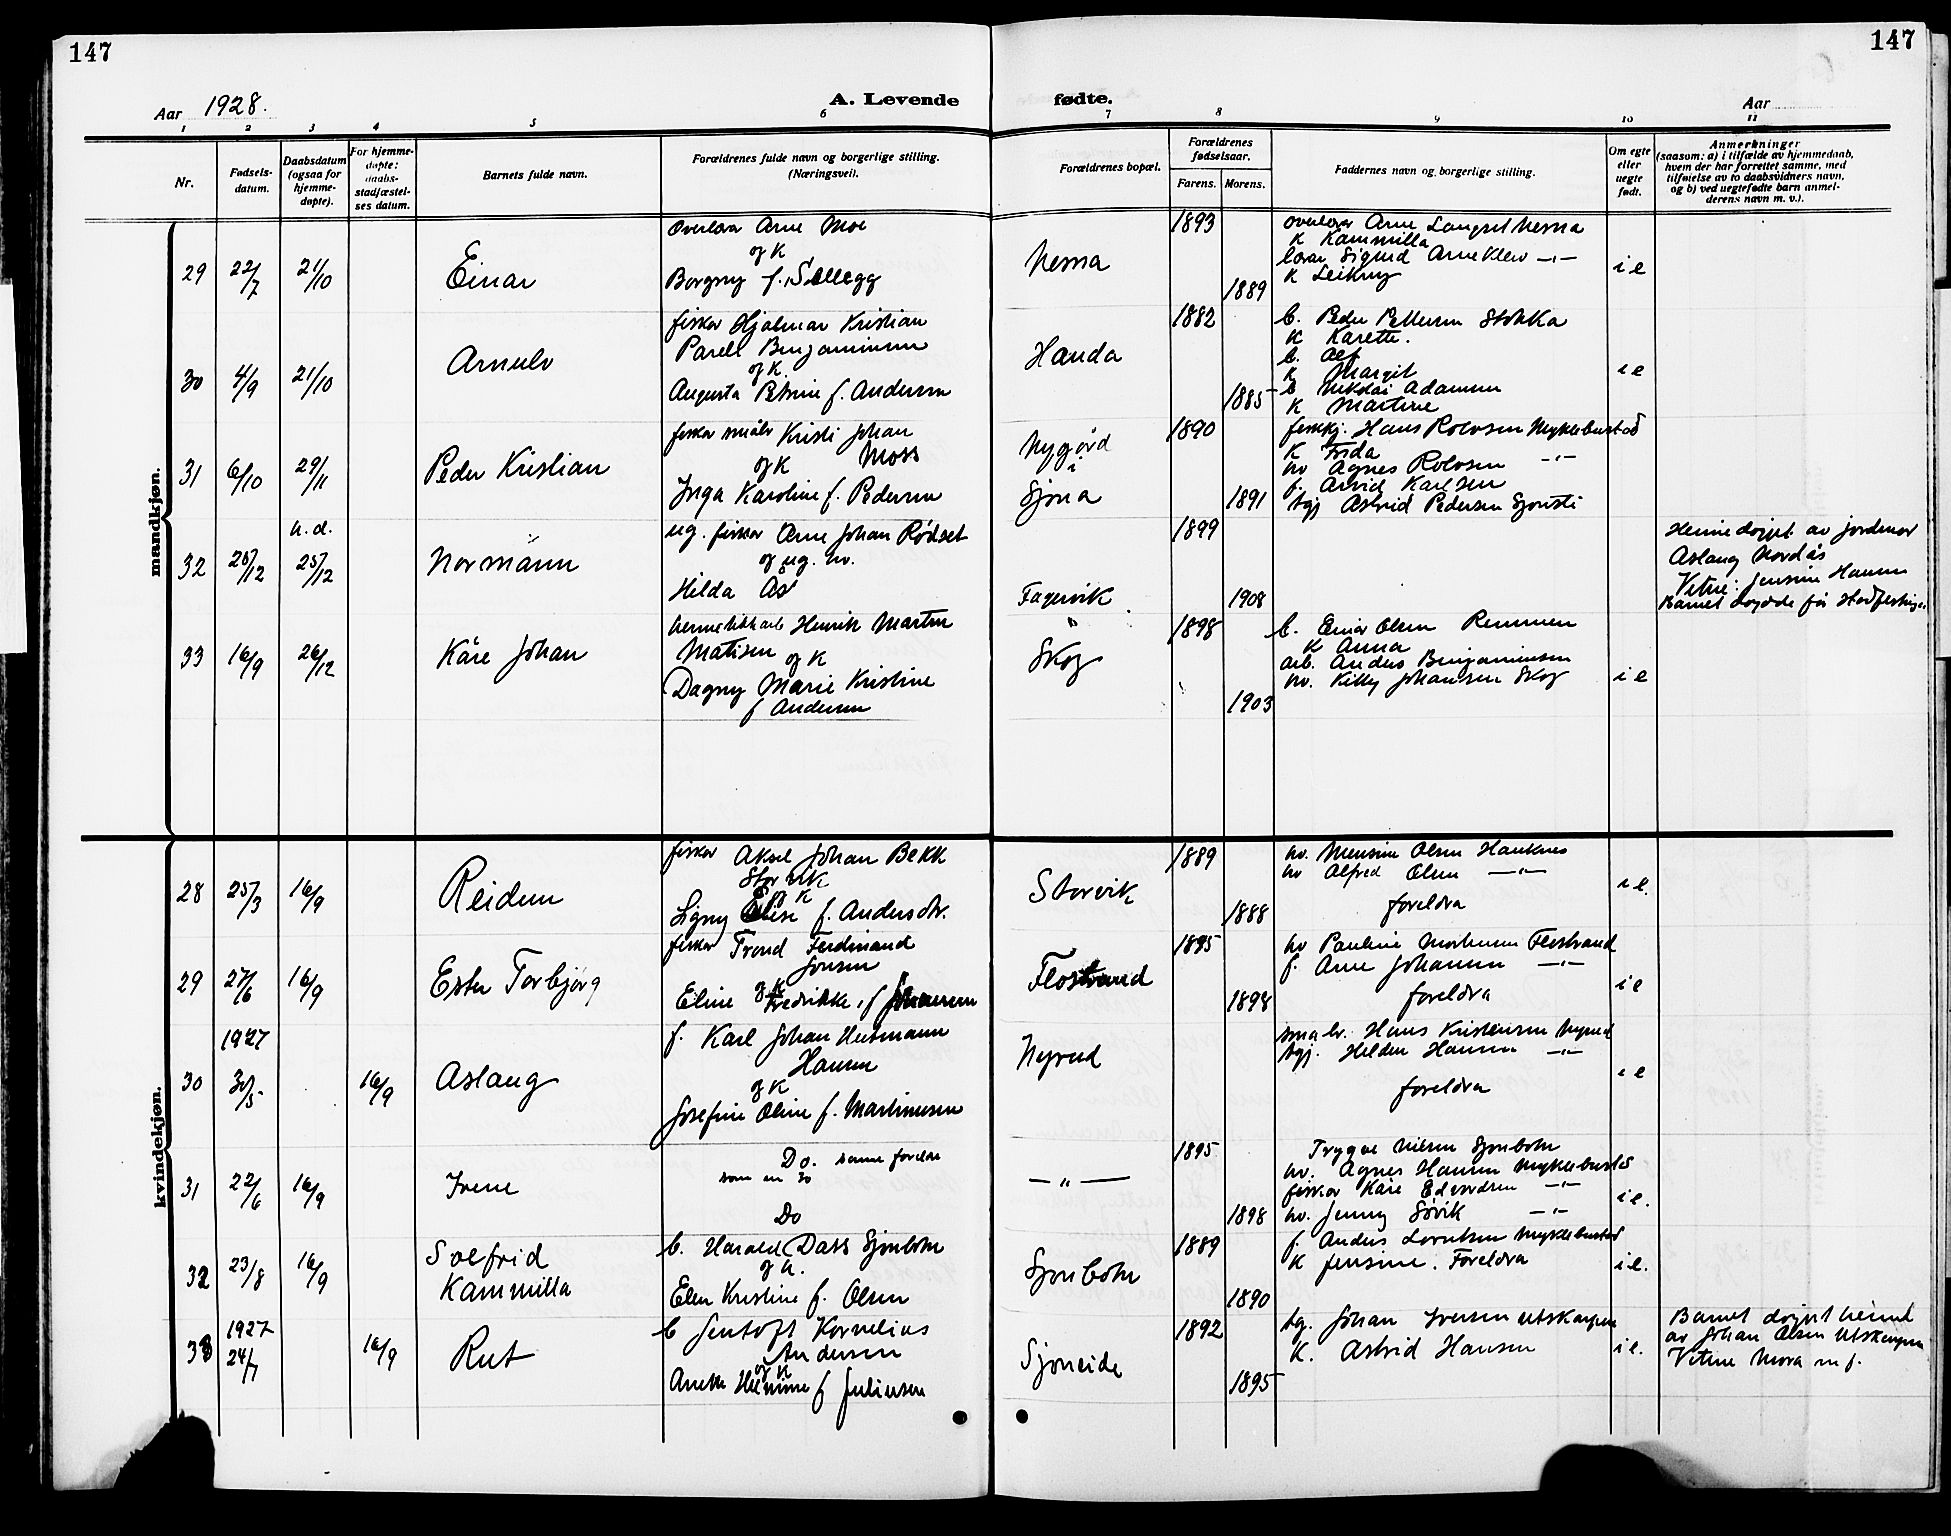 147
147
Aar 1928.
A. Levende fødte.
Aar
1 2 3 4 5 6 7 8 9 10 11
Nr.
Fødsels-
datum.
Daabsdatum
(ogsaa for
hjemme-
døpte).
For hjemme-
døpte:
daabs-
stadfæstel-
ses datum.
Barnets fulde navn.
Forældrenes fulde navn og borgerlige stilling.
(Næringsvei).
Forældrenes bopæl.
Forældrenes
fødselsaar.
Farens. Morens.
Faddernes navn og borgerlige stilling.
Om egte
eller
uegte
født.
Anmerkninger
(saasom: a) i tilfælde av hjemmedaab,
hvem der har forrettet samme, med
tilføielse av to daabsvidners navn,
og b) ved uegtefødte barn anmel-
derens navn m. v.).
mandkjøn.
29 22/7 21/10 Einar
overlærar Arne Moe
og K
Borgny f. Sellegg
Nesna
1893
1889
overlærar Arne Langset Nesna
K Kammilla
lærar Sigurd Arne Klev -"-
K Leikny
i e
30 4/9 21/10 Arnulv
fiskar Hjalmar Kristian
Parell Benjaminsen
og K.
Augusta Petrine f. Andersen
Handa
1882
1885
b. Peder Pettersen Stokka
K Karette.
b. Alf
K Margit
b Nikolai Adamsen
K Martine
i e
31 6/10 29/11 Peder Kristian
fiskar småbr Kristi Johan
Moss
og K
Inga Karoline f. Pedersen
Nygård
i
Sjona
1890
1891
Hans Rolvsen Myklebustad
K Frida
hv Agnes Rolvsen -"-
f. Arvid Karlsen
tgj Astrid Pedersen
h.d.
32 25/12 25/12 Normann
ug. fiskar Arne Johan Rødset
og ug. hv.
Hilda Ås
Fagervik
1899
1908
Heime døypt av jordmor
Aslaug Nordås
Vitne: Jensine Hansen
Barnet døydde før
33 16/9 26/12 Kåre Johan
Henrik Martin
Matisen og K
Dagny Marie Kristine
f Andersen
Skog
1898
1903
b. Einar Olsen Remmen
K Anna
arb. Anders Benjaminsen
hv. Kitty Johansen Skog
i e
kvindekjøn.
28 25/3 16/9 Reidun
fiskar Aksel Johan Bekk
Storvik
og K
Signy Elise f. Andersdtr.
Storvik
1889
1888
hv. Mensine Olsen Hauknes
hv Alfred Olsen -"-
foreldra
i e.
29 27/6 16/9 Ester Torbjørg
fiskar Trond Ferdinand
Jonsen
og K
Eline Fredrikke, f Johansen
Flostrand
1895
1898
hv Pauline Mortensen Flostrand
f. Arne Johansen -"-
foreldra
i e
1927
30 30/5 16/9 Aslaug
f. Karl Johan Hertmann
Hansen
og K
Josefine Oline f. Martinusen
Nyrud
småbr. Hans Kristensen Nyrud
tgj. Helden Hansen -"-
foreldra
i e
31 22/6 16/9 Irene
Do. samme foreldre
som nr 30
Do
-"-
1895
1898
Trygve Nilsen Sjonbotn
hv. Agnes Hansen Myklebustad
fiskar Kåre Edvardsen -"-
hv. Jenny Sørvik -"-
i e.
32 23/8 16/9 Solfrid
Kammilla
b. Harald Dass Sjonbotn
og K.
Elen Kristine f. Olsen
Sjonbotn
1889
1890
f. Anders Lorntsen Myklebustad
K Jensine. Foreldra
i e.
1927
33 24/7 16/9 Rut
b Gentoft Kornelius
Andersen
og K
Anette Helmine f Juliussen
Sjoneide
1892
1895
tg. Johan Iversen Utskarpen
K. Astrid Hansen
i e.
Barnet døypt heime
av Johan Olsen Utskarpen
Vitne Mora m f.